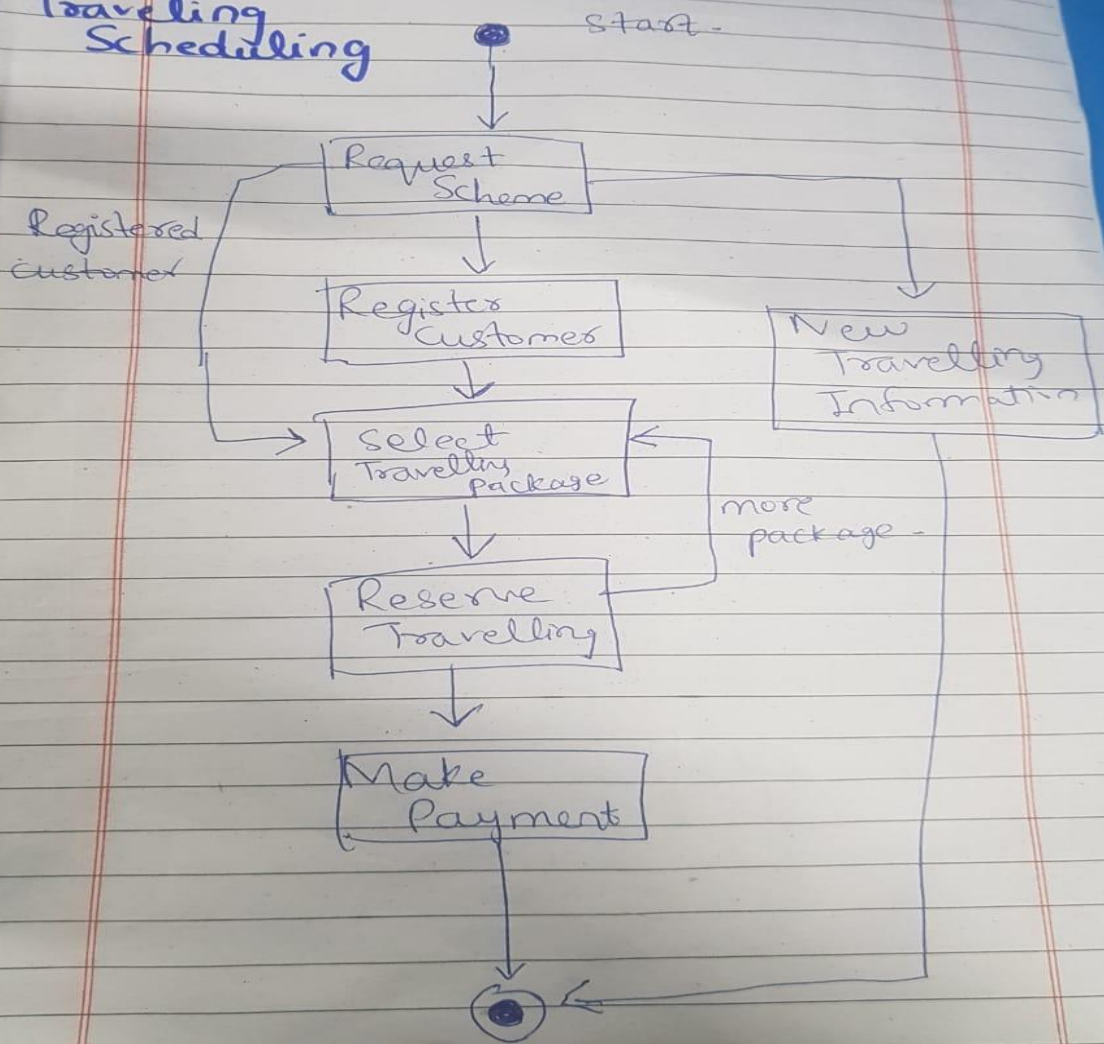 Traveling
Scheduling
Start-
Request
Scheme
Registered
customer
Register
Customer
New
Travelling
Information
Select
Travelling
package
more
package-
Reserve
Travelling
Make
Payment